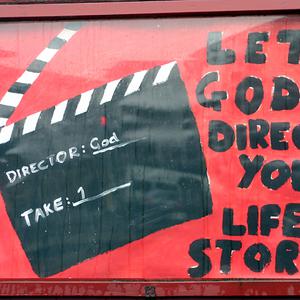 DIRECTOR: God
TAKE: 1
LET
GOD
DIREC
YO
LIFE
STOR